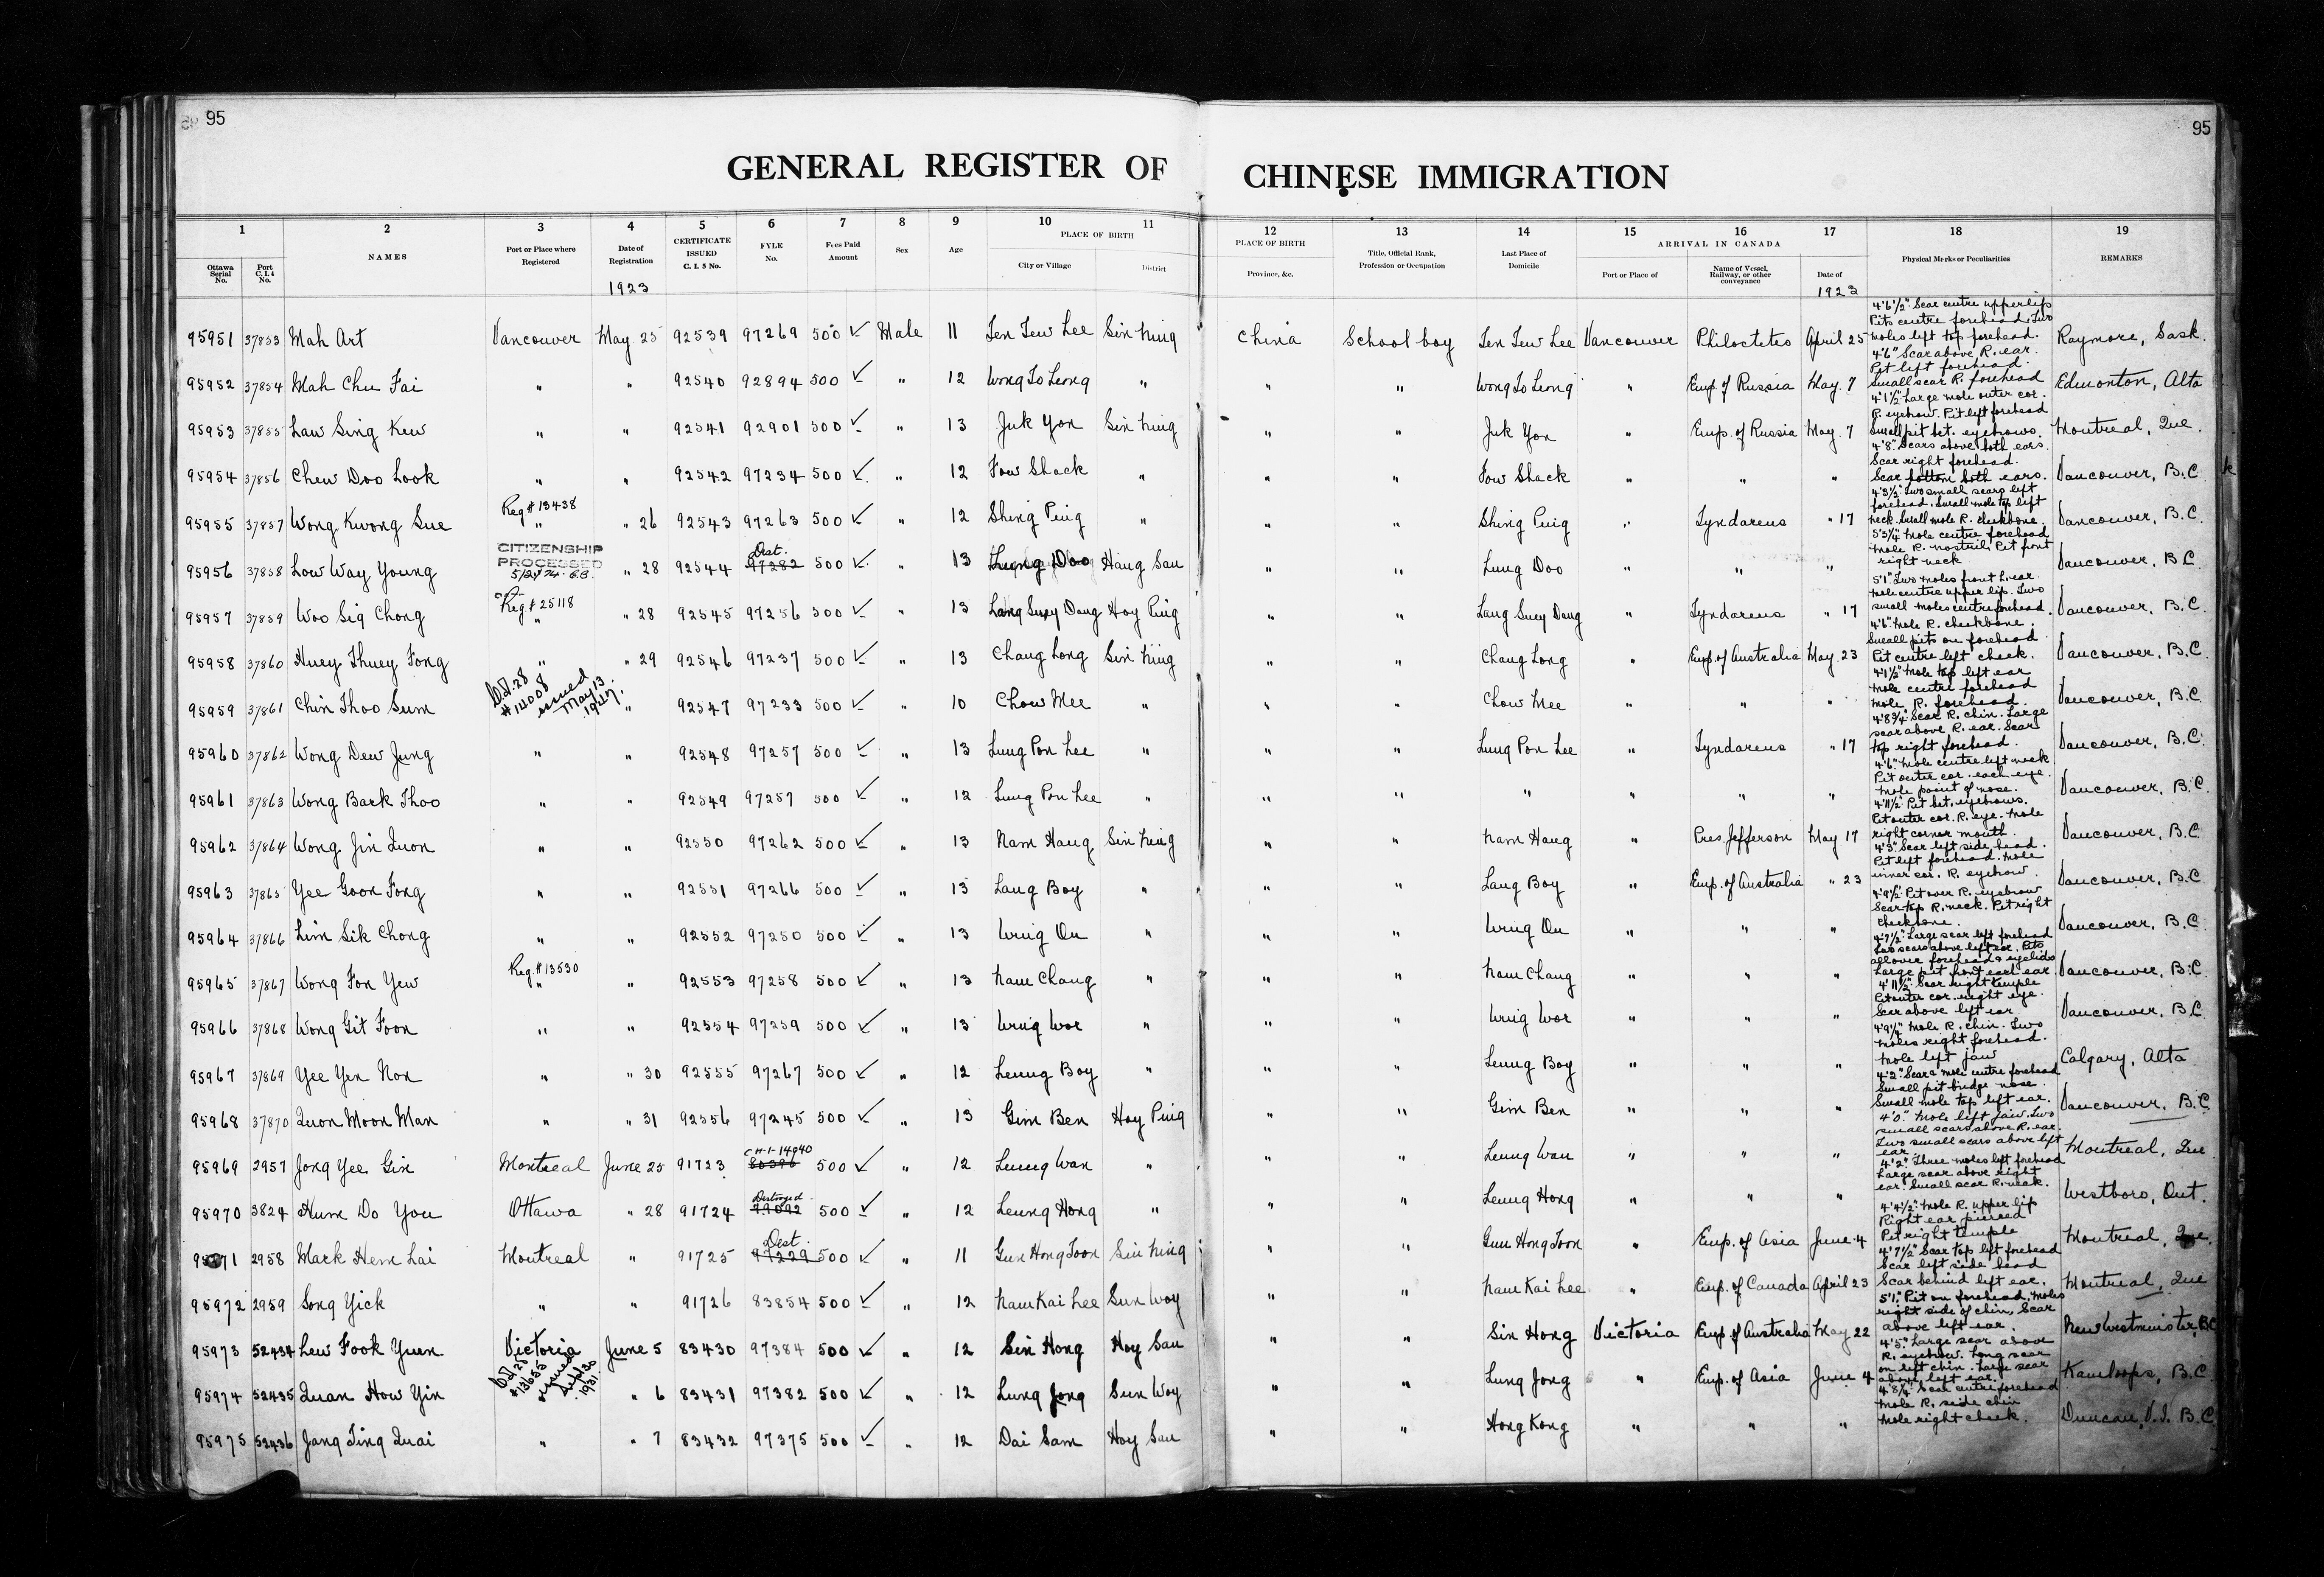 95
95
GENERAL REGISTER OF CHINESE IMMIGRATION
1 2 3 4 5 6 7 8 9 10 11 12 13 14 15 16 17 18 19
Ottawa Serial No. Port C.I.4 No. NAMES Port or Place where Registered Date of Registration CERTIFICATE ISSUED C.I.5 No. FYLE No. Fees Paid Amount Sex Age PLACE OF BIRTH City or Village District PLACE OF BIRTH Province, &c. Title, Official Rank, Profession or Occupation Last Place of Domicile ARRIVAL IN CANADA Port or Place of Name of Vessel, Railway, or other conveyance Date of Physical Marks or Peculiarities REMARKS
1923 1923
95951 37853 Mah Art Vancouver May 25 92539 97269 500 ✓ Male 11 Sen Sew Lee Sin Ning China School boy Sen Sew Lee Vancouver Philoctetes April 25 4'6½" Scar centre upper lip Pits centre forehead. Two moles left top forehead. Raymore, Sask.
95952 37854 Mah Chu Fai " " 92540 92894 500 ✓ " 12 Wong Jo Leong " " " Wong Jo Leong " Emp. of Russia May 7 4'6" Scar above R. ear. Pit left forehead. Small scar R. forehead Edmonton, Alta
95953 37855 Law Sing Kew " " 92541 92901 500 ✓ " 13 Juk Yon Sin Ning " " Juk Yon " Emp. of Russia May 7 4'1½" Large mole outer cor. R. eyebrow. Pit left forehead Small pit bet. eyebrows. Montreal, Que.
95954 37856 Chew Doo Look " " 92542 97234 500 ✓ " 12 Fow Shack " " " Fow Shack " " " 4'8" Scars above both ears. Scar right forehead. Scar bottom both ears. Vancouver, B.C.
95955 37857 Wong Kwong Sue Reg # 13438 " " 26 92543 97263 500 ✓ " 12 Shing Ping " " " Shing Ping " Tyndareus " 17 4'3½" Two small scars left forehead. Small mole top left neck. Small mole R. cheekbone. Vancouver, B.C.
95956 37858 Low Way Young CITIZENSHIP PROCESSED " 28 92544 Dest. 97282 500 ✓ " 13 Lung Doo Hang San " " Lung Doo " " " 5'3¼" Mole centre forehead Mole R. nostril, Pit front right neck Vancouver, B.C.
95957 37859 Woo Sig Chong Reg # 25118 " " 28 92545 97256 500 ✓ " 13 Lang Suey Dang Hoy Ping " " Lang Suey Dang " Tyndareus " 17 5'1" Two moles front L. ear. Mole centre upper lip. Two small moles centre forehead. Vancouver, B.C.
95958 37860 Huey Thuey Fong " " 29 92546 97237 500 ✓ " 13 Chang Long Sin Ning " " Chang Long " Emp. of Australia May 23 4'6" Mole R. cheekbone. Small pits on forehead Pit centre left cheek. Vancouver, B.C.
95959 37861 Chin Thoo Sum C.I.28 # 14008 issued May 13 1927. " 92547 97233 500 ✓ " 10 Chow Mee " " " Chow Mee " " " 4'1½" Mole top left ear Mole centre forehead Mole R. forehead. Vancouver, B.C.
95960 37862 Wong Dew Jung " " 92548 97257 500 ✓ " 13 Lung Pon Lee " " " Lung Pon Lee " Tyndareus " 17 4'8¾" Scar R. chin. Large scar above R. ear. Scar top right forehead. Vancouver, B.C.
95961 37863 Wong Bark Thoo " " 92549 97257 500 ✓ " 12 Lung Pon Lee " " " " " " " 4'6" Mole centre left neck Pit outer cor. each eye. Mole point of nose. Vancouver, B.C.
95962 37864 Wong Jin Quon " " 92550 97262 500 ✓ " 13 Nam Hang Sin Ning " " Nam Hang " Pres. Jefferson May 17 4'11½" Pit bet. eyebrows. Pit outer cor. R. eye. Mole right corner mouth. Vancouver, B.C.
95963 37865 Yee Goon Fong " " 92551 97266 500 ✓ " 13 Lang Boy " " " Lang Boy " Emp. of Australia " 23 4'3" Scar left side head. Pit left forehead. Mole inner cor. R. eyebrow. Vancouver, B.C.
95964 37866 Lim Sik Chong " " 92552 97250 500 ✓ " 13 Wing On " " " Wing On " " " 4'9½" Pit over R. eyebrow Scar top R. neck. Pit right cheekbone. Vancouver, B.C.
95965 37867 Wong Fon Yew Reg. # 13530 " " 92553 97258 500 ✓ " 13 Nam Chang " " " Nam Chang " " " 4'7½" Large scar left forehead Two scars above left ear. Pits all over forehead & eyelids Large pit front each ear. Vancouver, B.C.
95966 37868 Wong Git Foon " " 92554 97259 500 ✓ " 13 Wing Wor " " " Wing Wor " " " 4'11½" Scar right temple Pit outer cor. right eye. Scar above left ear Vancouver, B.C.
95967 37869 Yee Yen Non " " 30 92555 97267 500 ✓ " 12 Leung Boy " " " Leung Boy " " " 4'9¼" Mole R. chin. Two moles right forehead. Mole left jaw Calgary, Alta
95968 37870 Quon Moon Man " " 31 92556 97245 500 ✓ " 13 Gim Ben Hoy Ping " " Gim Ben " " " 4'2" Scar & mole centre forehead Small pit bridge nose. Small mole top left ear. Vancouver, B.C.
95969 2957 Jong Yee Gin Montreal June 25 91723 C.H-1-14940 500 ✓ " 12 Leung Wan " " " Leung Wan " " " 4'0" Mole left jaw. Two small scars above R. ear. Two small scars above left ear. Montreal, Que
95970 3824 Hum Do You Ottawa " 28 91724 Destroyed 500 ✓ " 12 Leung Hong " " " Leung Hong " " " 4'2" Three moles left forehead Large scar above right ear. Small scar R. neck. Westboro, Ont.
95971 2958 Mark Hem Lai Montreal " 91725 Dest. 97229 500 ✓ " 11 Gun Hong Toon Sin Ning " " Gun Hong Toon " Emp. of Asia June 4 4'4½" Mole R. upper lip Right ear pierced Pit right temple Montreal, Que.
95972 2959 Song Yick " " 91726 83854 500 ✓ " 12 Nam Kai Lee Sun Woy " " Nam Kai Lee " Emp. of Canada April 23 4'7½" Scar top left forehead Scar left side head Scar behind left ear. Montreal, Que
95973 52434 Lew Fook Yuen Victoria June 5 83430 97384 500 ✓ " 12 Sin Hong Hoy San " " Sin Hong Victoria Emp. of Australia May 22 5'1" Pit on forehead. Moles right side of chin, Scar above left ear. New Westminster, BC
95974 52435 Quan How Yin C.I.28 # 13655 issued Sept 30 1931. " " 6 83431 97382 500 ✓ " 12 Lung Jong Sun Woy " " Lung Jong " Emp. of Asia June 4 4'5" Large scar above R. eyebrow. Long scar on left chin. Large scar above left ear. Kamloops, B.C.
95975 52436 Jang Ting Quai " " 7 83432 97375 500 ✓ " 12 Dai Sam Hoy San " " Hong Kong " " " 4'8¼" Scar centre forehead Mole R. side chin Mole right cheek. Duncan, V.I. B.C.